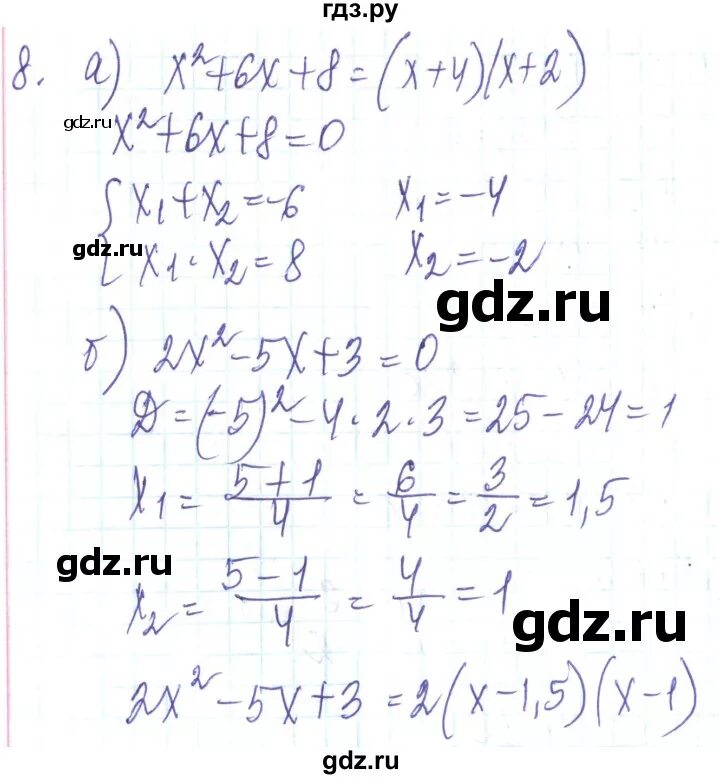 гдз.ру
8. а) x²+6x+8=(x+4)(x+2)
gdz.ru
x²+6x+8=0
{ x₁+x₂=-6 x₁=-4
gdz.ru
x₁·x₂=8 x₂=-2
gdz.ru
б) 2x²-5x+3=0
Д=(-5)²-4·2·3=25-24=1
x₁= 5+1/4 = 6/4 = 3/2 =1,5
gdz.ru
x₂= 5-1/4 = 4/4 =1
gdz.ru
2x²-5x+3=2(x-1,5)(x-1)
gdz.ru